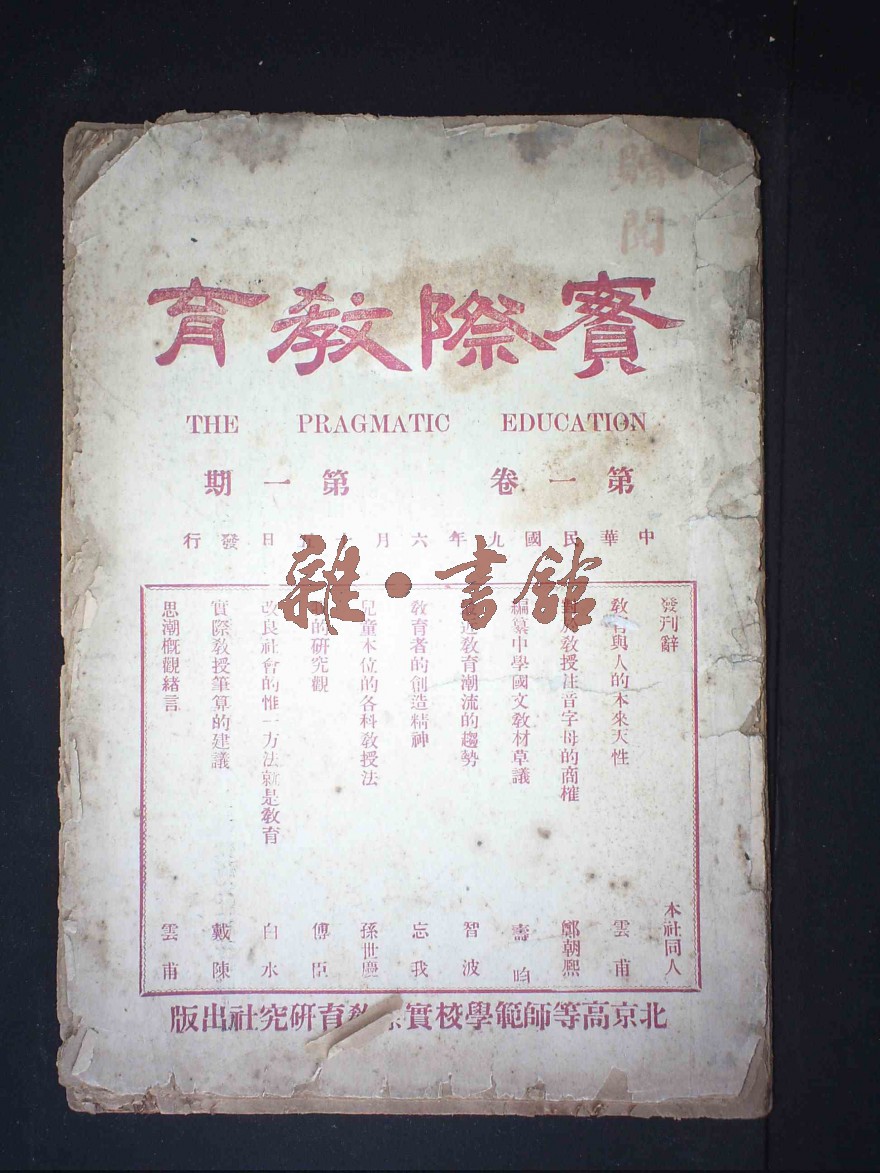 贈閱
實際教育
THE PRAGMATIC EDUCATION
第一卷 第一期
中華民國九年六月 日發行
雜·書館
發刊辭 本社同人
教育與人的本來天性 雲甫
對於教授注音字母的商榷 鄭朝熙
編纂中學國文教材草議 壽昀
近教育潮流的趨勢 智波
教育者的創造精神 忘我
兒童本位的各科教授法 孫世慶
的研究觀 傅臣
改良社會的惟一方法就是教育 白水
實際教授筆算的建議 戴陳
思潮概觀緒言 雲甫
北京高等師範學校實際教育研究社出版